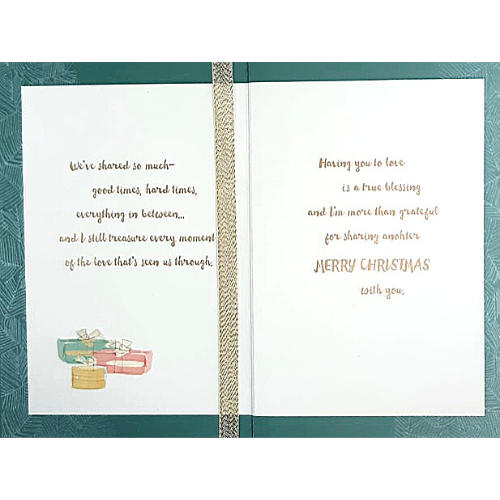 We've shared so much–
good times, hard times,
everything in between...
and I still treasure every moment
of the love that's seen us through.
Having you to love
is a true blessing
and I'm more than grateful
for sharing anohter
MERRY CHRISTMAS
with you.